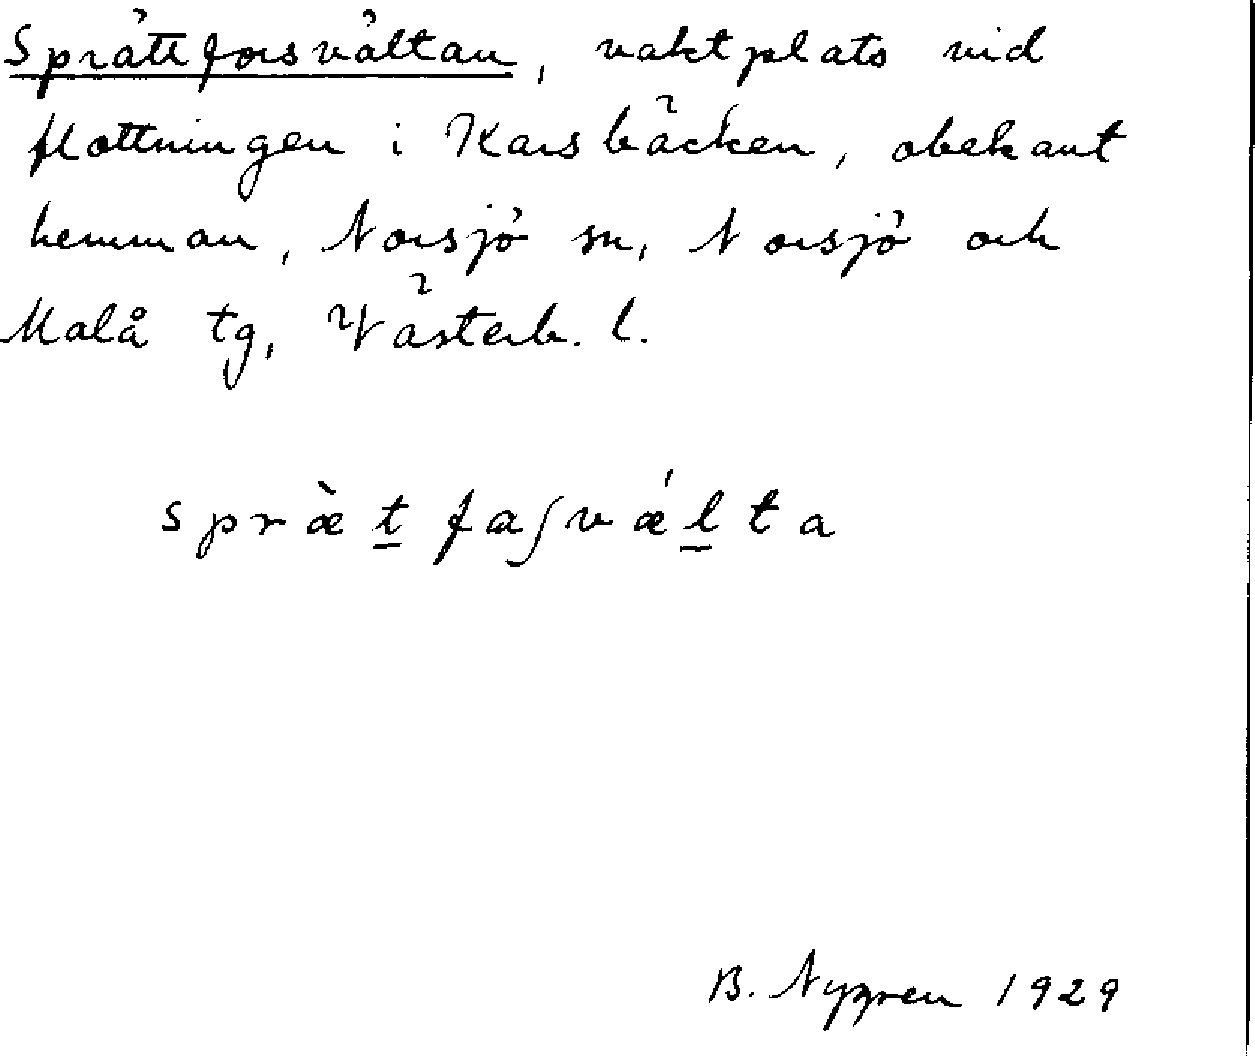 Sprättforsvältan, vaktplats vid
flottningen i Karsbäcken, obekant
hemman, Norsjö sn, Norsjö och
Malå tg, Västerb. l.
spræ̀t̲faʃvǽl̲ta
B. Nygren 1929